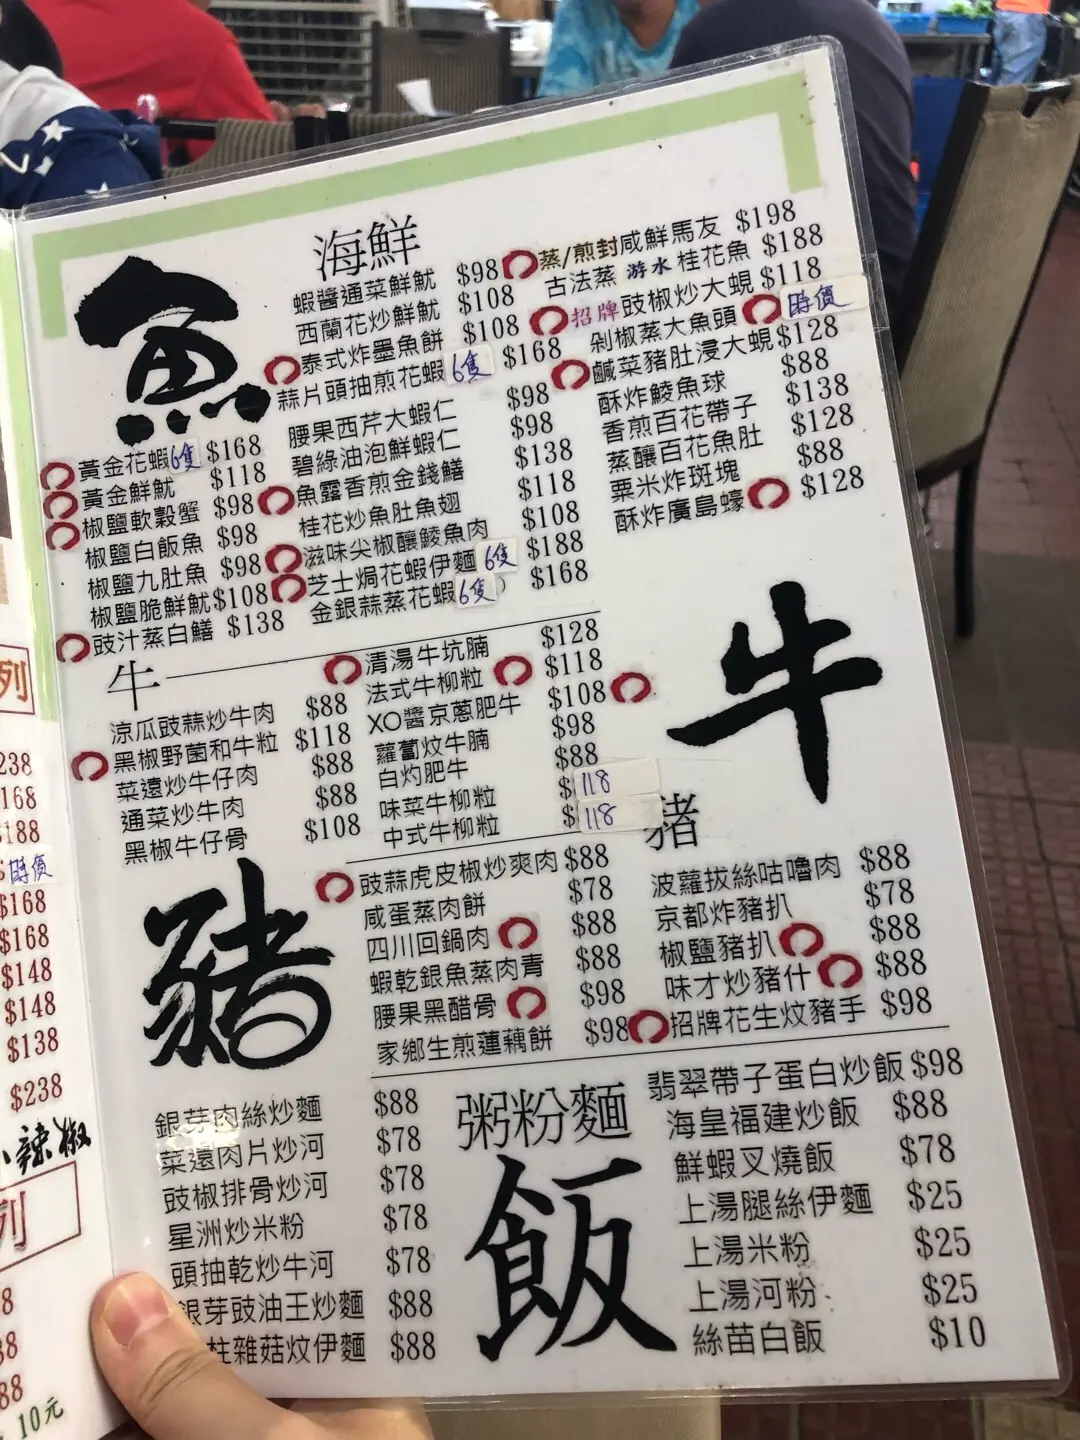 海鮮
魚
蝦醬通菜鮮魷 $98
西蘭花炒鮮魷 $108
泰式炸墨魚餅 $108
蒜片頭抽煎花蝦 6隻 $168
腰果西芹大蝦仁 $98
碧綠油泡鮮蝦仁 $98
魚露香煎金錢鱔 $138
桂花炒魚肚魚翅 $118
滋味尖椒釀鯪魚肉 $108
芝士焗花蝦伊麵 6隻 $188
金銀蒜蒸花蝦 6隻 $168
蒸/煎封咸鮮馬友 $198
古法蒸 游水 桂花魚 $188
招牌豉椒炒大蜆 $118
剁椒蒸大魚頭 時價
鹹菜豬肚浸大蜆 $128
酥炸鯪魚球 $88
香煎百花帶子 $138
蒸釀百花魚肚 $128
粟米炸斑塊 $88
酥炸廣島蠔 $128
黃金花蝦 6隻 $168
黃金鮮魷 $118
椒鹽軟殼蟹 $98
椒鹽白飯魚 $98
椒鹽九肚魚 $98
椒鹽脆鮮魷 $108
豉汁蒸白鱔 $138
牛
牛
涼瓜豉蒜炒牛肉 $88
黑椒野菌和牛粒 $118
菜遠炒牛仔肉 $88
通菜炒牛肉 $88
黑椒牛仔骨 $108
清湯牛坑腩 $128
法式牛柳粒 $118
XO醬京蔥肥牛 $108
蘿蔔炆牛腩 $98
白灼肥牛 $88
味菜牛柳粒 $118
中式牛柳粒 $118
豬
豬
豉蒜虎皮椒炒爽肉 $88
咸蛋蒸肉餅 $78
四川回鍋肉 $88
蝦乾銀魚蒸肉青 $88
腰果黑醋骨 $98
家鄉生煎蓮藕餅 $98
波蘿拔絲咕嚕肉 $88
京都炸豬扒 $78
椒鹽豬扒 $88
味才炒豬什 $88
招牌花生炆豬手 $98
粥粉麵
飯
銀芽肉絲炒麵 $88
菜遠肉片炒河 $78
豉椒排骨炒河 $78
星洲炒米粉 $78
頭抽乾炒牛河 $78
銀芽豉油王炒麵 $88
柱雜菇炆伊麵 $88
翡翠帶子蛋白炒飯 $98
海皇福建炒飯 $88
鮮蝦叉燒飯 $78
上湯腿絲伊麵 $25
上湯米粉 $25
上湯河粉 $25
絲苗白飯 $10
列
238
168
$188
時價
$168
$168
$148
$148
$138
$238
辣椒
列
8
38
88
10元